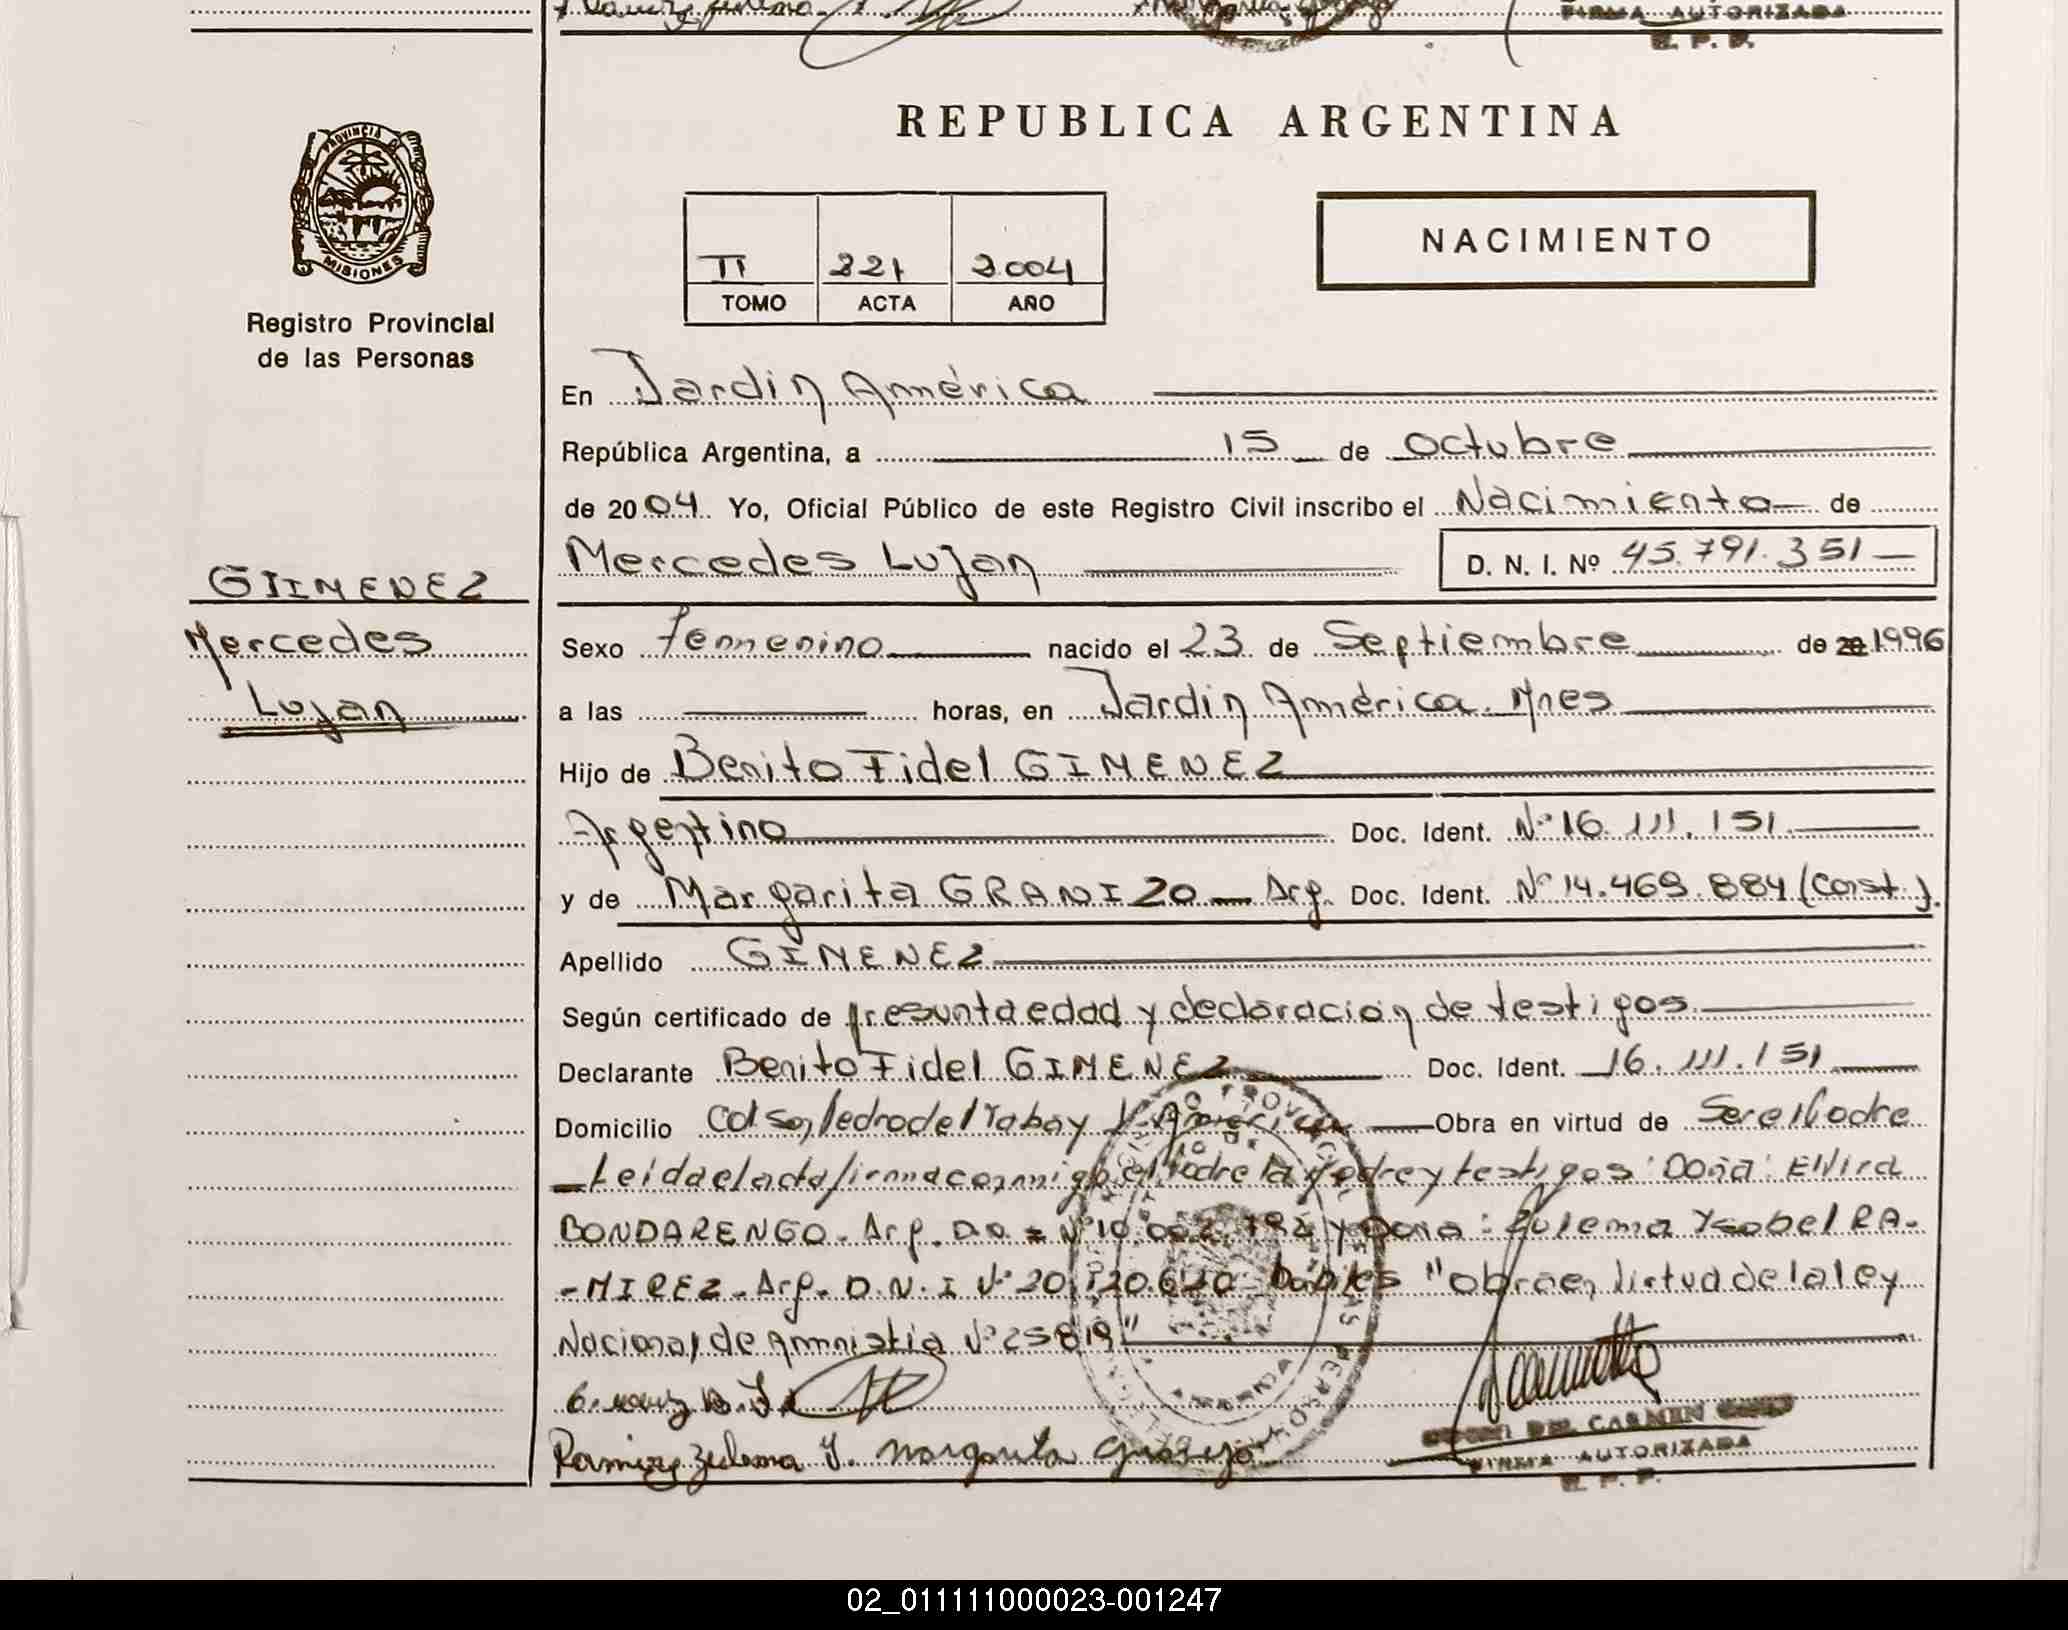 FIRMA AUTORIZADA
R. P. P.
PROVINCIA DE
MISIONES
Registro Provincial
de las Personas
REPUBLICA ARGENTINA
NACIMIENTO
II 221 2004
TOMO ACTA AÑO
En Jardin América
República Argentina, a 15 de octubre
de 2004. Yo, Oficial Público de este Registro Civil inscribo el Nacimiento de
Mercedes Lujan D. N. I. Nº 45.791.351
GIIMENEZ
Mercedes
Lujan
Sexo Femenino nacido el 23 de Septiembre de 1996
a las horas, en Jardin América. Mnes
Hijo de Benito Fidel GIMENEZ
Argentino Doc. Ident. Nº 16.111.151
y de Margarita GRANIZO Arg. Doc. Ident. Nº 14.469.884 (Const.).
Apellido GIMENEZ
Según certificado de presunta edad y declaracion de testigos
Declarante Benito Fidel GIMENEZ Doc. Ident. 16.111.151
Domicilio América Obra en virtud de Ser el Padre
Leida el acta firma conmigo el Padre la Madre y testigos: Doña: Elvira
BONDARENGO. Arg. Nº 10.002. y Doña: Zulema Ysabel RA-
-MIREZ. Arg. D.N.I Nº 20. Habiles "obra en virtud de la ley
Nacional de Amnistia Nº 25819"
Ramirez Zulema Y. Margarita
DEL CARMEN
FIRMA AUTORIZADA
R. P. P.
02_011111000023-001247